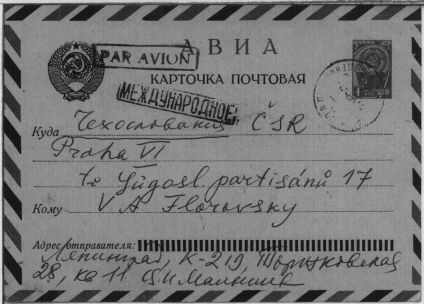 АВИА
PAR AVION
КАРТОЧКА ПОЧТОВАЯ
МЕЖДУНАРОДНОЕ
4
Куда Чехословакия ČSR
Praha VI
Jugosl. partisánů 17
Кому V A Florovsky
Адрес отправителя:
Ленинград, К-219, Торжковская
28, кв 11. В.И Малышев